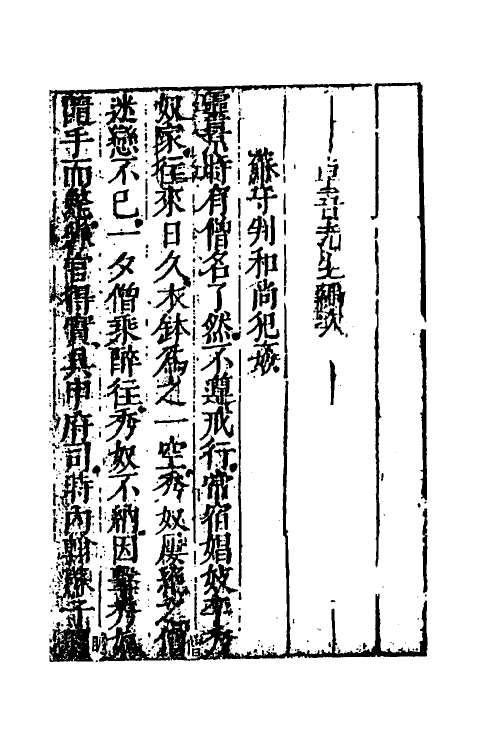 卓吾先生編次
蘇守判和尚犯姦
靈景時有僧名了然不遵戒行常宿娼妓李秀
奴家往來日久衣鉢爲之一空秀奴屢絶之僧
迷戀不已一夕僧乘醉往秀奴不納因擊秀奴
隨手而斃縣官得實具申府司時內翰蘇子